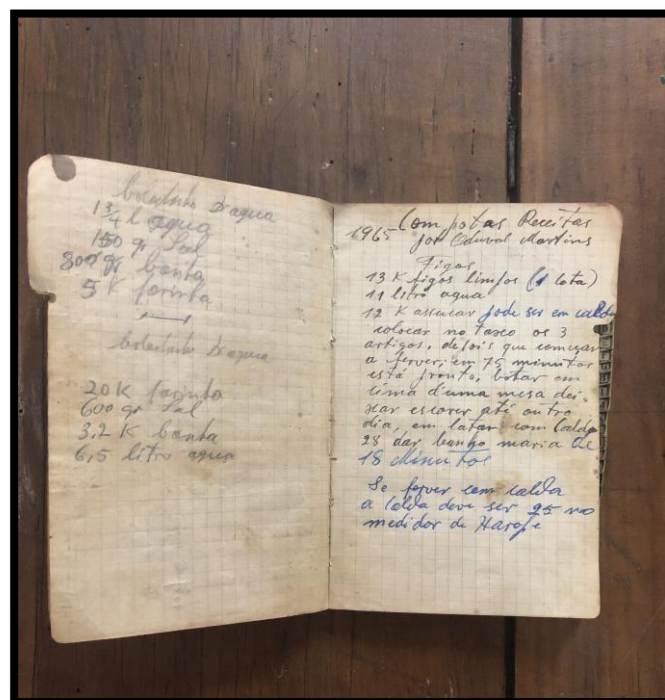 bolachinha D'agua
1 3/4 l agua
150 gr Sal
300 gr banha
5 K farinha
bolachinha D'agua
20 K farinha
600 gr Sal
3,2 K banha
6,5 litro agua
1965 Compotas Receitas
por Oduval Martins
Figos
13 K figos limpos (1 lata)
11 litro agua
12 K assucar pode ser em calda
colocar no taxo os 3
artigos, depois que começar
a ferver, em 75 minutos
está pronto, botar em
cima d'uma mesa dei-
xar escorer até outro
dia, em latar com Calda
28 dar banho maria de
18 Minutos
Se ferver com calda
a Calda deve ser 25 no
medidor de